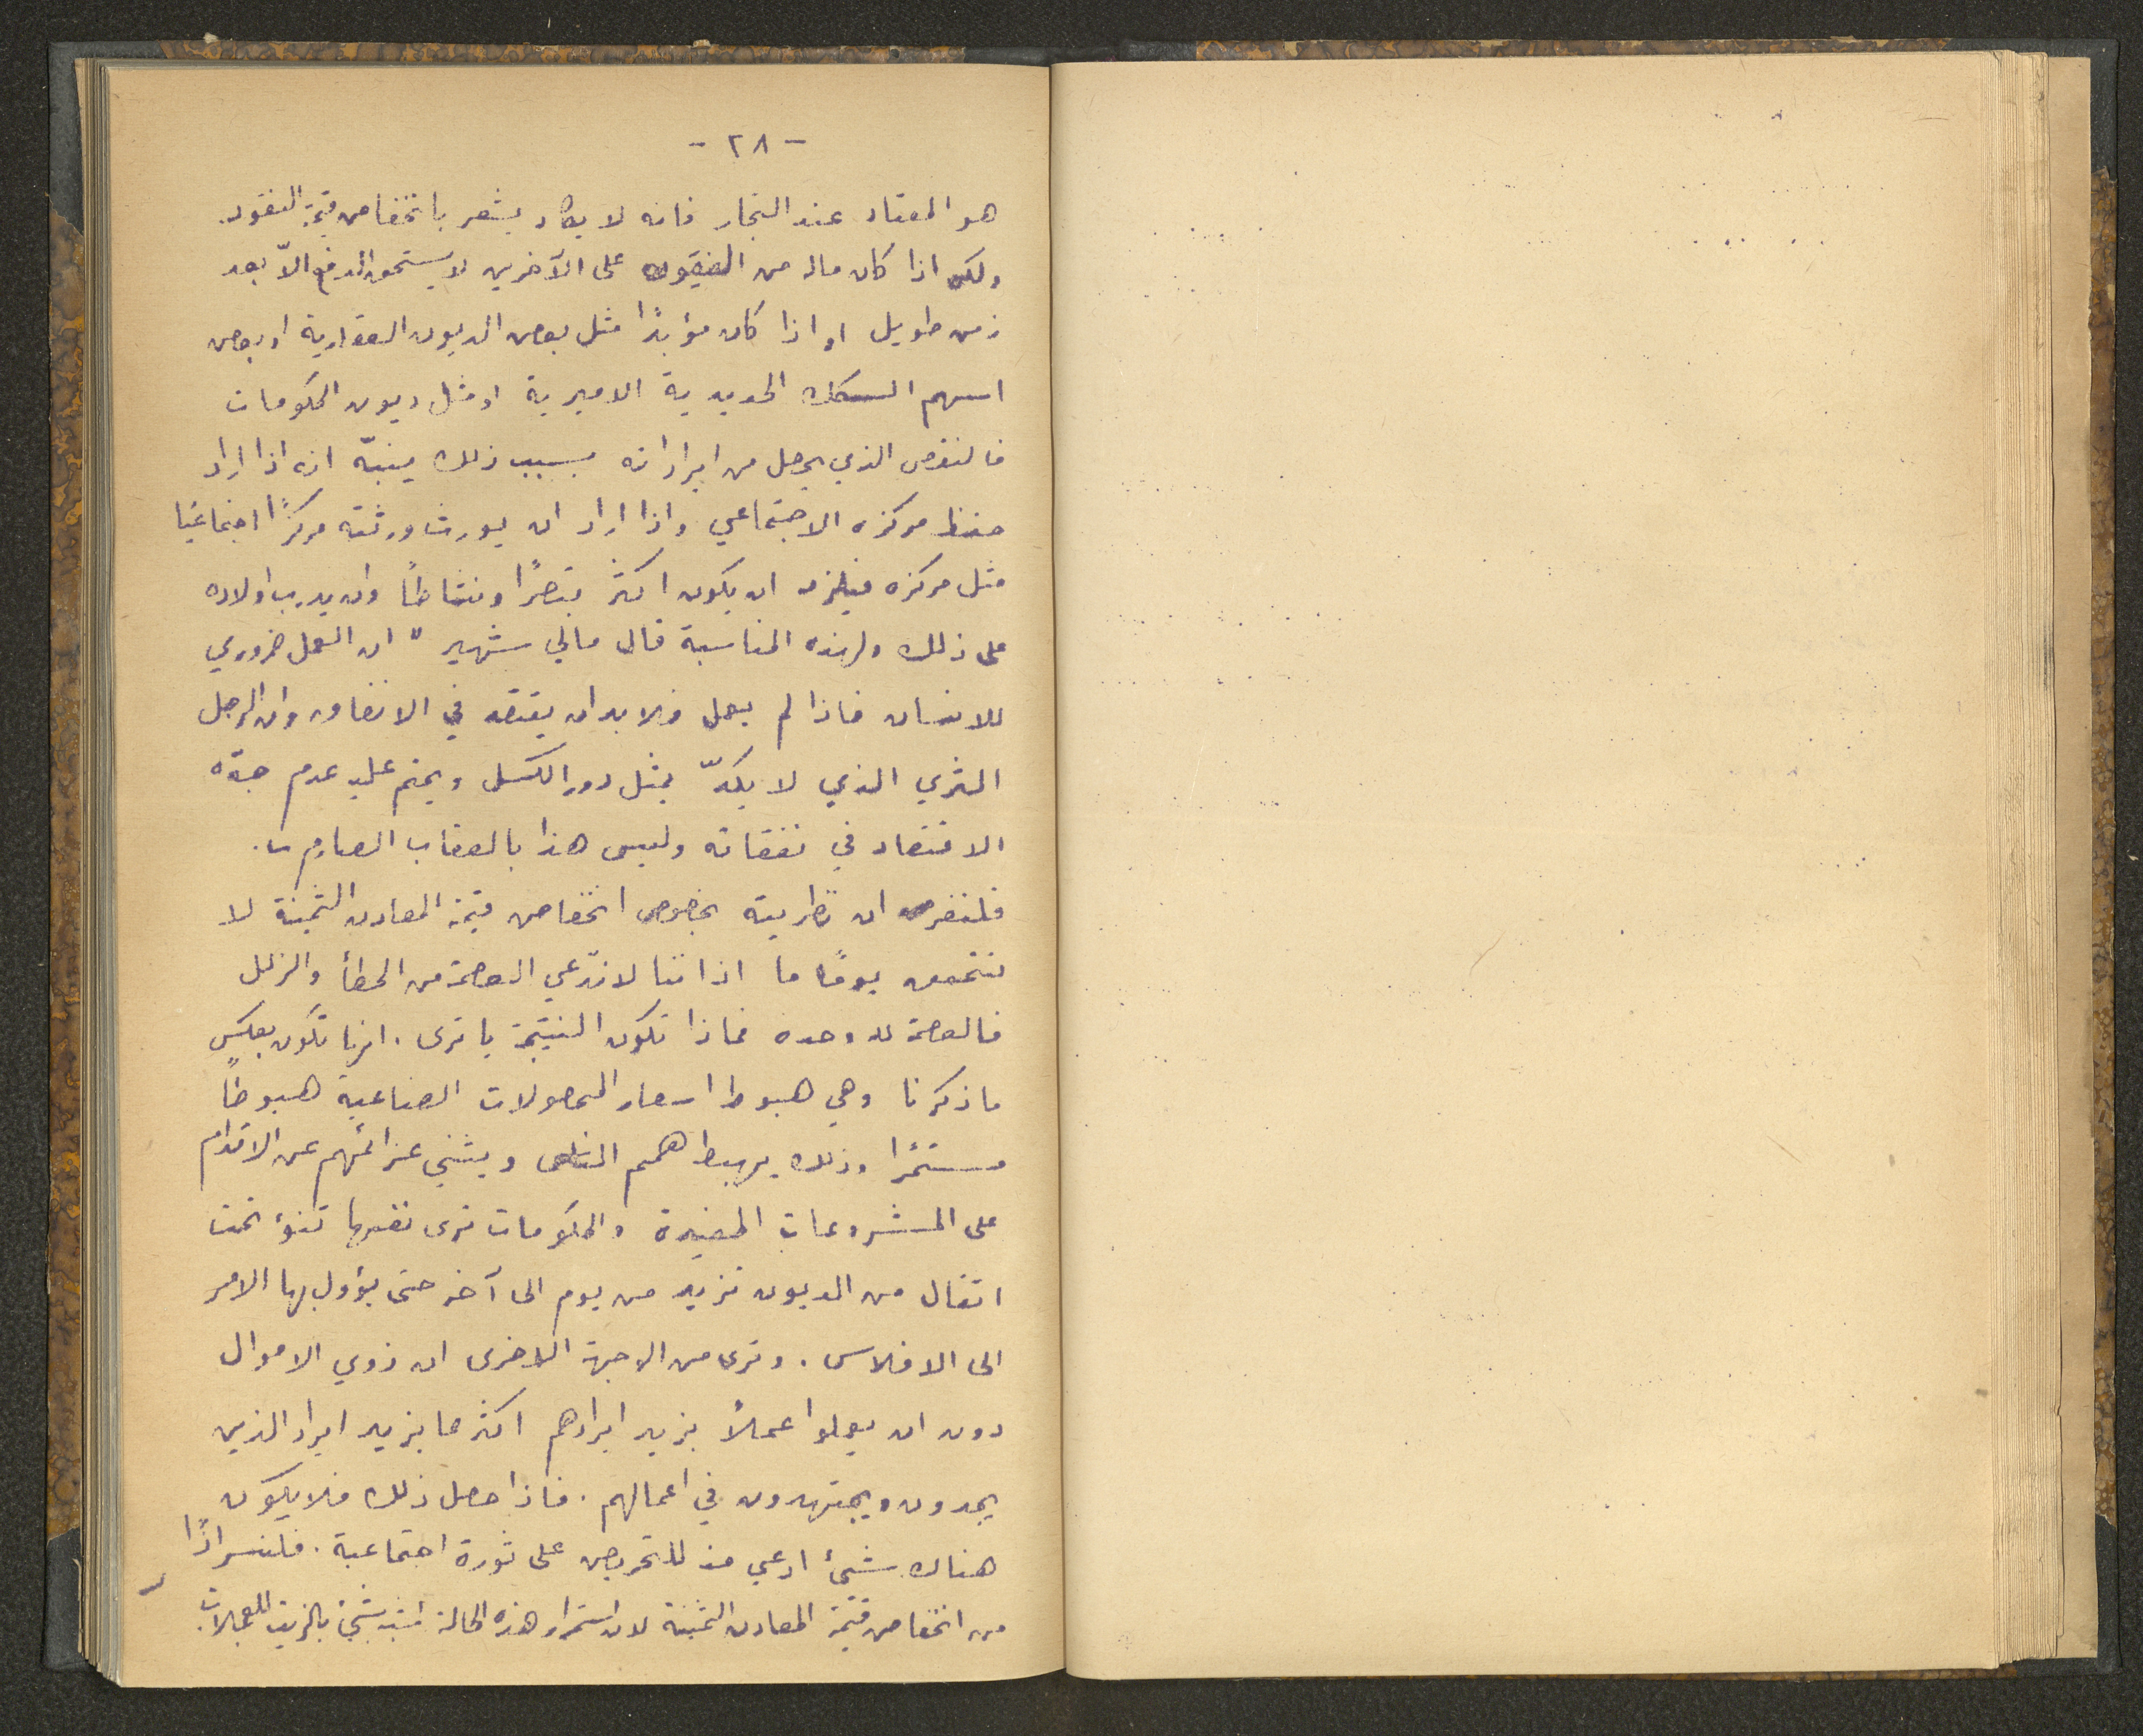 - ٢٨ -
هو المعتاد عند التجار فانه لا يكاد يشعر بانخفاض قيمة النقود.
ولكن اذا كان ماله من الديون على الآخرين لا يستحق الدفع الاّ بعد
زمن طويل او اذا كان مؤبدًا مثل بعض الديون العقارية او بعض
اسهم السكك الحديدية الاميرية او مثل ديون الحكومات
فالنقص الذي يحصل من ايراداته بسبب ذلك ينبّه انه اذا اراد
حفظ مركزه الاجتماعي واذا اراد ان يورث ورثته مركزًا اجتماعيًا
مثل مركزه فيلزم ان يكون اكثر تبصرًا ونشاطًا وان يدرب اولاده
على ذلك ولهذه المناسبة قال مالي شهير " ان العمل ضروري
للانسان فاذا لم يعمل فلا بد ان يقتصد في الانفاق وان الرجل
الثري الذي لا يكدّ يمثل دور الكسل ويحتم عليه عدم جدّه
الاقتصاد في نفقاته وليس هذا بالعقاب الصارم ".
فلنفرض ان نظريته بخصوص انخفاض قيمة المعادن الثمينة لا
تتحقق يومًا ما اذ اننا لا ندّعي العصمة من الخطأ والزلل
فالعصمة لله وحده فماذا تكون النتيجة يا ترى . انها تكون بعكس
ما ذكرنا وهي هبوط اسعار المحصولات الصناعية هبوطًا
مستمرًا وذلك يهبط همم الناس ويثني عزائمهم عن الاقدام
على المشروعات المفيدة والحكومات ترى نفسها تنوء تحت
اثقال من الديون تزيد من يوم الى آخر حتى يؤول بها الامر
الى الافلاس . وترى من الوجهة الاخرى ان ذوي الاموال
دون ان يعملوا عملاً يزيد ايرادهم اكثر مما يزيد ايراد الذين
يجدون ويجتهدون في اعمالهم . فاذا حصل ذلك فلا يكون
هناك شيئ ادعى منه للتحريض على ثورة اجتماعية . فلنسر اذًا
من انخفاض قيمة المعادن الثمينة لان استمرار هذه الحالة اشبه بشيئ بالزيت للعجلات.